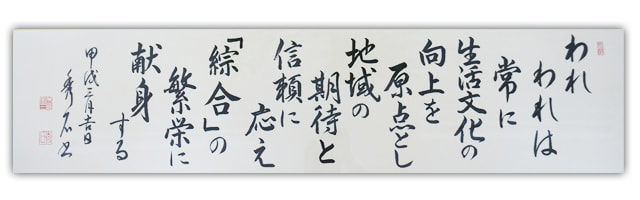 われ
われは
常に
生活文化の
向上を
原点とし
地域の
期待と
信頼に
応え
「綜合」の
繁栄に
献身
する
甲戌三月吉日
秀石書